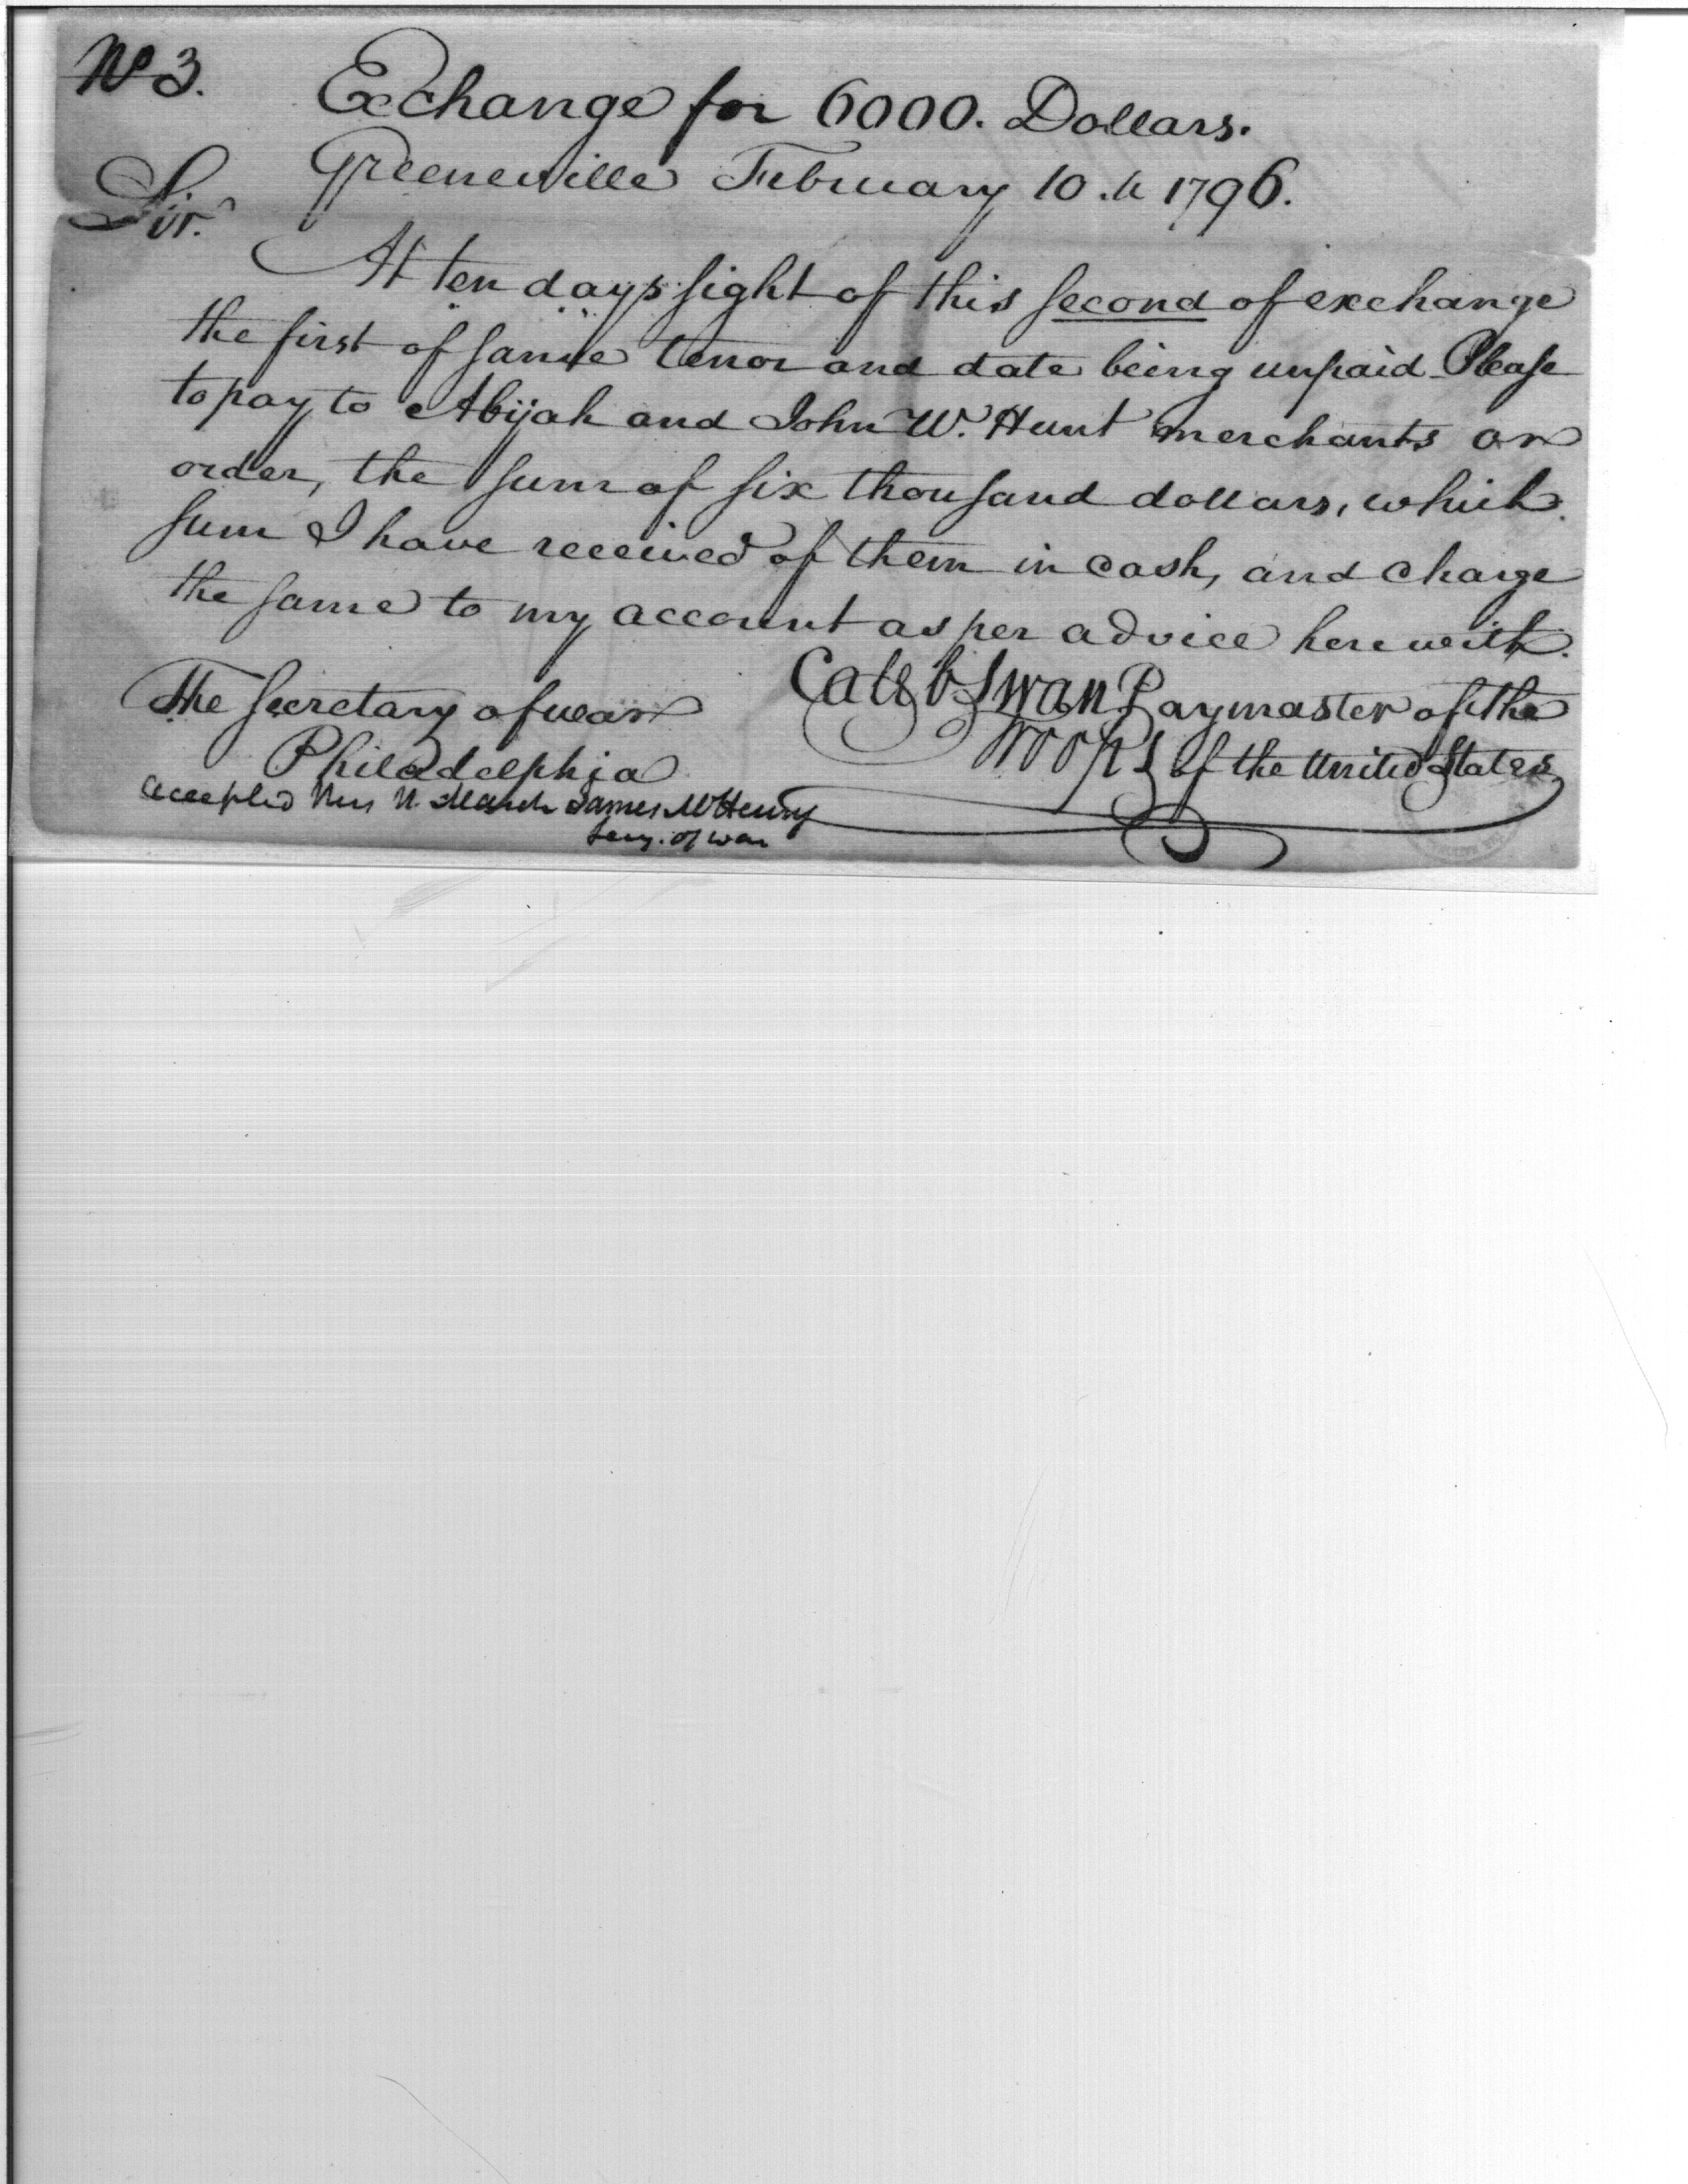 No 3. Exchange for 6000. Dollars.
Greeneville February 10.th 1796.
Sir.
At ten days sight of this second of exchange
the first of same tenor and date being unpaid Please
to pay to Abijah and John W. Hunt merchants or
order, the sum of six thousand dollars, which
sum I have received of them in cash, and charge
the same to my account as per advice herewith.
Caleb Swan Paymaster of the
Troops of the United States
The Secretary of war
Philadelphia
accepted March James McHenry
Secy. of war